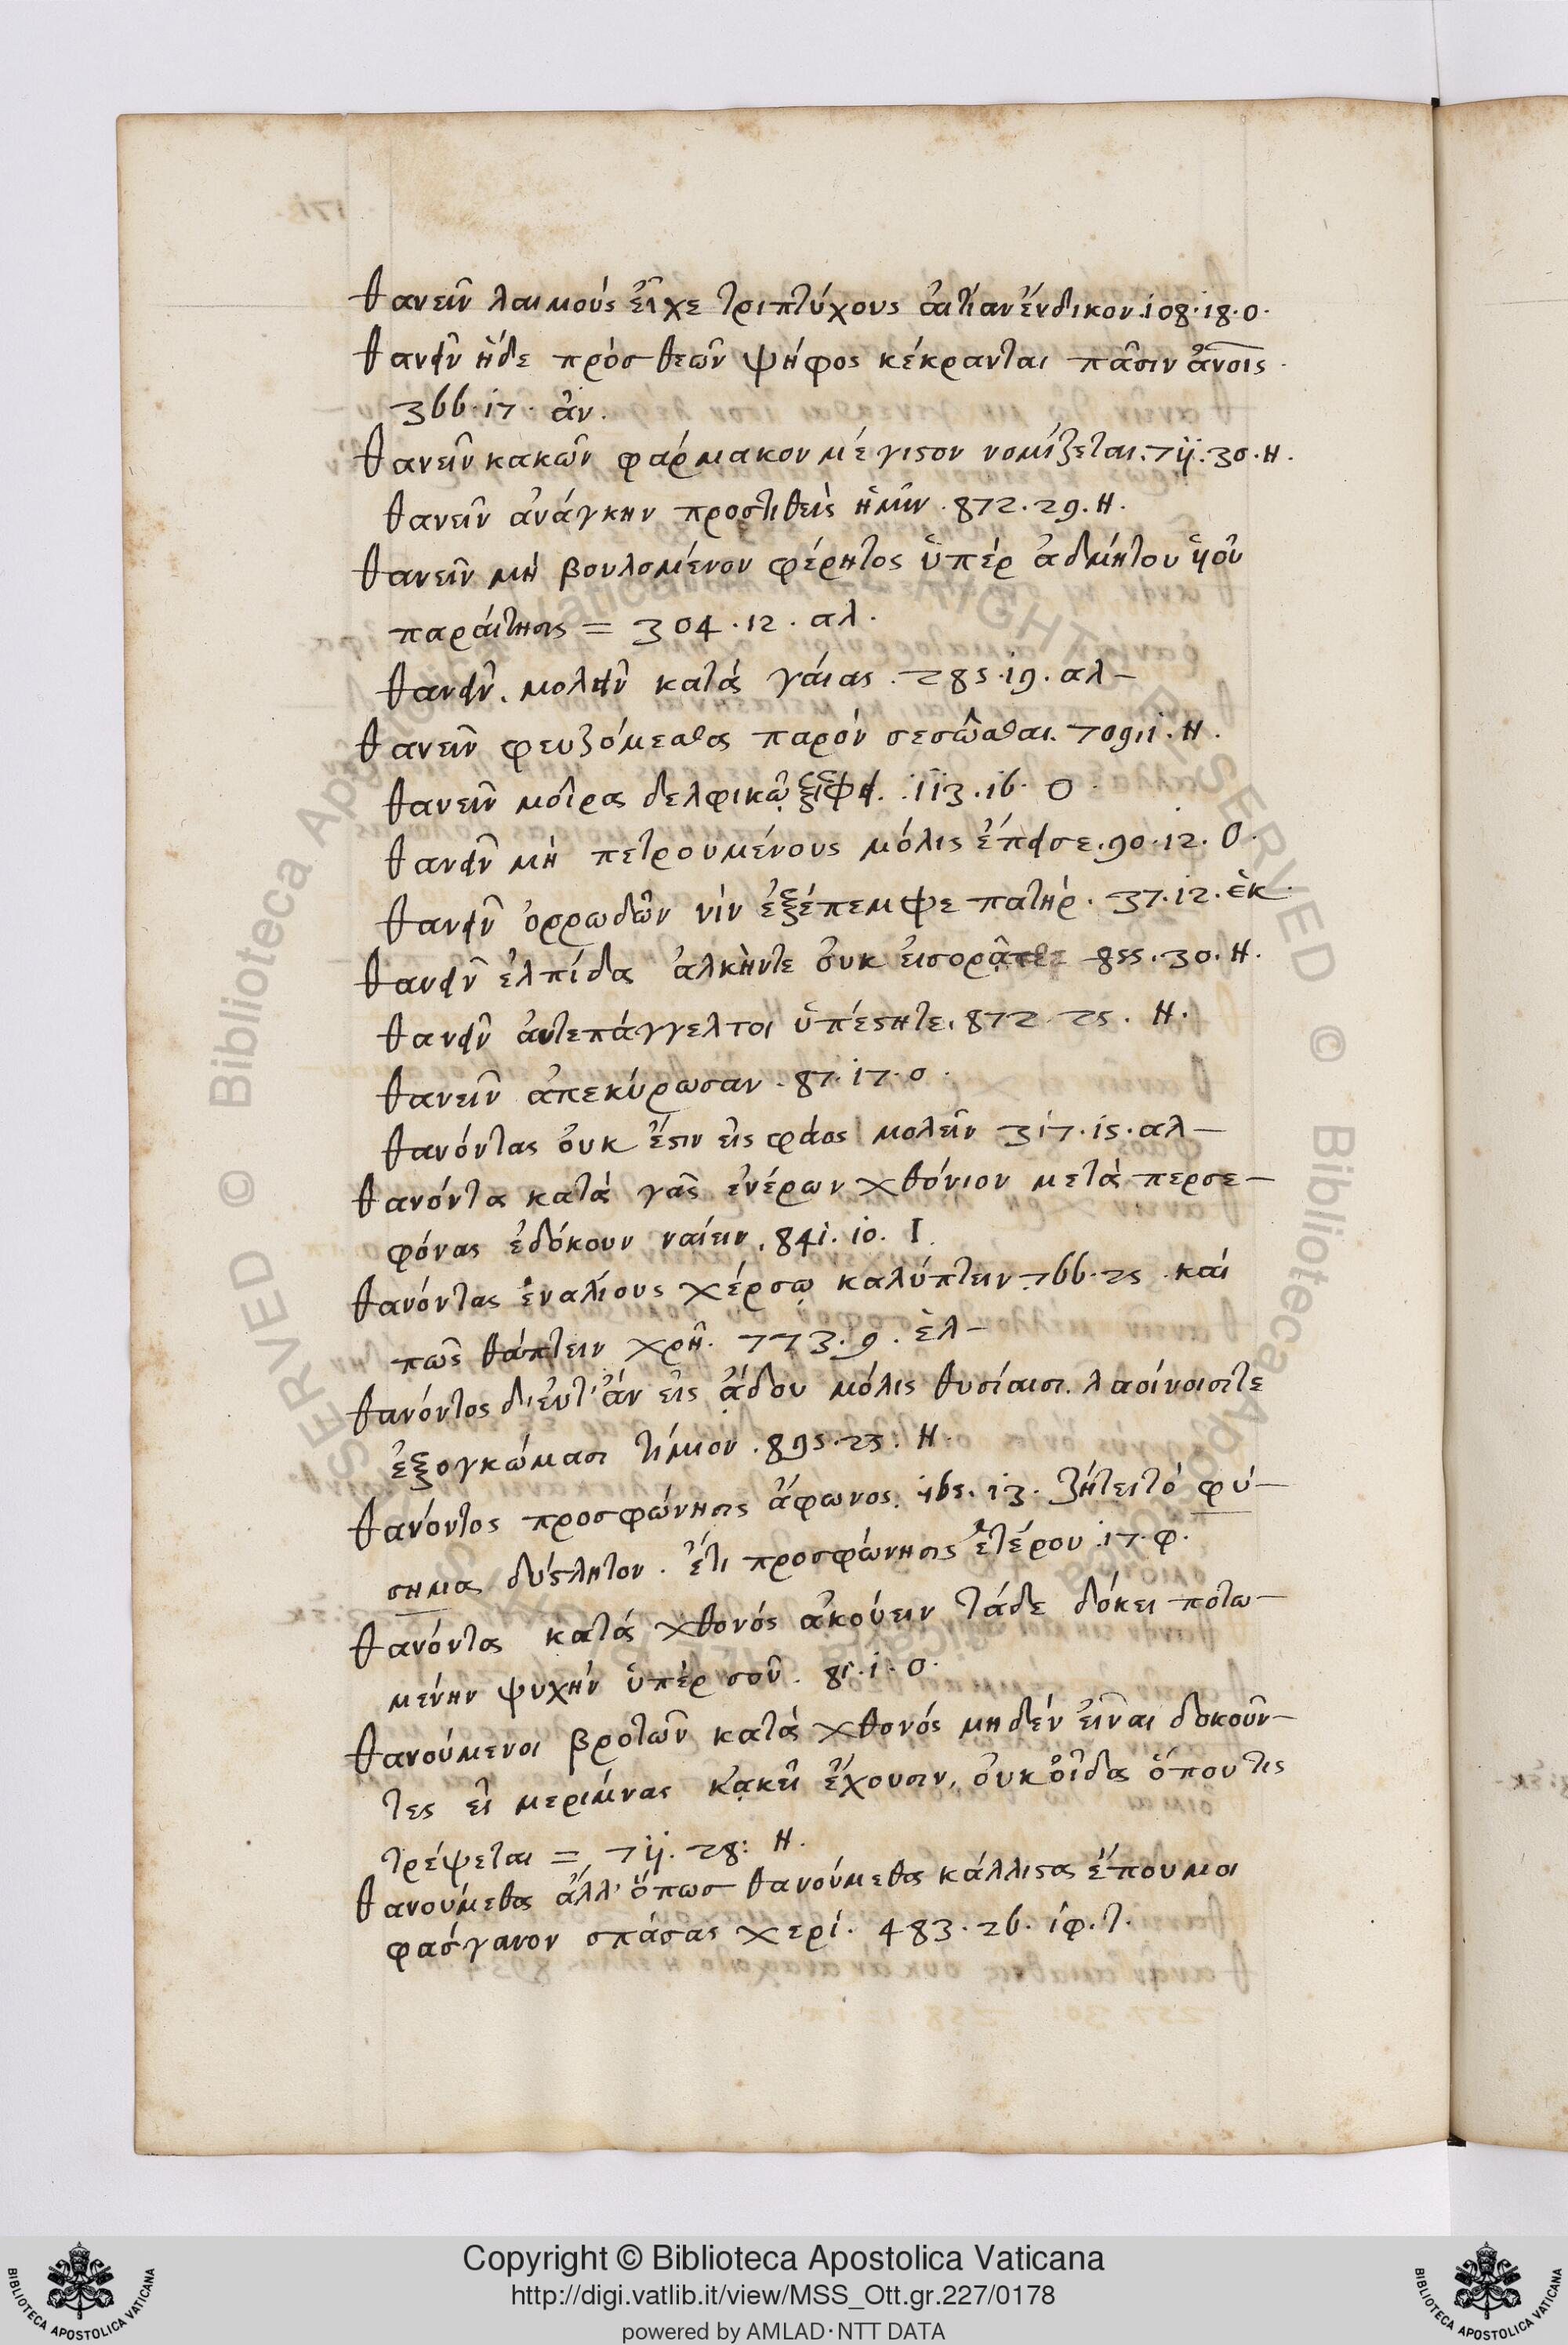 θανεῖν λαιμοὺς εἶχε τριπτύχους αἰτίαν ἔνδικον. 108. 18. ο.
θανεῖν ἥδε πρὸσ θεῶν ψῆφος κέκρανται πᾶσιν ἀνοις.
366. 17. ἀν.
θανεῖν κακῶν φάρμακον μέγιστον νομίζεται. 711. 30. Η.
θανεῖν ἀνάγκην προστιθεὶς ἡμῖν. 872. 29. Η.
θανεῖν μὴ βουλομένου φέρητος ὑπὲρ ἀδμήτου
παραίτησις = 304. 12. αλ.
θανεῖν. μολεῖν κατὰ γαίας. 285. 19. αλ—
θανεῖν φευξόμεσθα παρὸν σεσῶσθαι. 709. 11. Η.
θανεῖν μοῖρα δελφικῷ ξίφει. 113. 16. Ο.
θανεῖν μὴ πετρουμένους μόλις ἔπεισε. 90. 12. Ο.
θανεῖν ὀρρωδῶν νὶν ἐξέπεμψε πατήρ. 37. 12. ἐκ.
θανεῖν ἐλπίδα ἀλκήντε οὐκ εἰσορᾶται 855. 30. Η.
θανεῖν ἀντεπάγγελτοι ὑπέστητε. 872. 25. Η.
θανεῖν ἀπεκύρωσαν. 87. 17. ο.
θανόντας οὐκ ἔστιν εἰς φάος μολεῖν 317. 15. αλ—
θανόντα κατὰ γᾶς ἐνέρων χθόνιον μετὰ περσε—
φόνας ἐδόκουν ναίειν. 841. 10. Ι.
θανόντας ἐναλίους χέρσῳ καλύπτειν. 766. 25. καὶ
πῶς θάπτειν χρῆ. 773. 9. ἑλ—
θανόντος δ' εὖτ' ἂν εἰς ᾅδου μόλις θυσίαισι. λαοίνοισίτε
ἐξογκώμασι τίμιον. 895. 23. Η.
θανόντος προσφώνησις ἄφωνος. 165. 13. ζήτει τὸ φύ—
σημα δύστλητον. ἔτι προσφώνησις ἑτέρου. 17. φ.
θανόντα κατὰ χθονὸς ἀκούειν τάδε δόκει ποτω—
μένην ψυχὴν ὑπὲρ σοῦ. 81. 1. Ο.
θανούμενοι βροτῶν κατὰ χθονὸς μηδὲν εἶναι δοκοῦν—
τες εἰ μερίμνας κᾀκεῖ ἔχουσιν, οὐκ οἶδα ὅπου τις
τρέψεται = 711. 28: Η.
θανούμεθα ἀλλ' ὅπωσ θανούμεθα κάλλιστα ἕπου μοι
φάσγανον σπάσας χερί. 483. 26. ἰφ. τ.
Copyright © Biblioteca Apostolica Vaticana
http://digi.vatlib.it/view/MSS_Ott.gr.227/0178
powered by AMLAD·NTT DATA